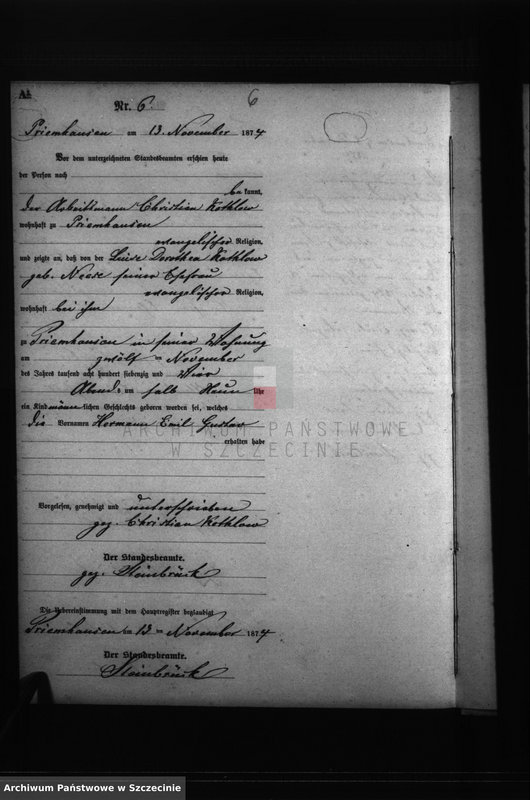 A.
Nr. 6.
6
Priemhausen am 13. November 1874
Vor dem unterzeichneten Standesbeamten erschien heute
der Person nach
bekannt,
der Arbeitsmann Christian Kothlow
wohnhaft zu Priemhausen
evangelischer Religion,
und zeigte an, daß von der Luise Dorothea Kothlow
geb. seiner Ehefrau
evangelischer Religion,
wohnhaft bei ihm
zu Priemhausen in seiner Wohnung
am zwölf ten November
des Jahres tausend acht hundert siebenzig und Vier
Abends um halb Neun Uhr
ein Kind männlichen Geschlechts geboren worden sei, welches
die Vornamen Hermann Emil Gustav
erhalten habe
ARCHIWUM PAŃSTWOWE
W SZCZECINIE
Vorgelesen, genehmigt und unterschrieben
gez. Christian Kothlow
Der Standesbeamte.
gez. Steinbrück
Die Uebereinstimmung mit dem Hauptregister beglaubigt
Priemhausen am 13 ten November 1874
Der Standesbeamte.
Steinbrück
Archiwum Państwowe w Szczecinie